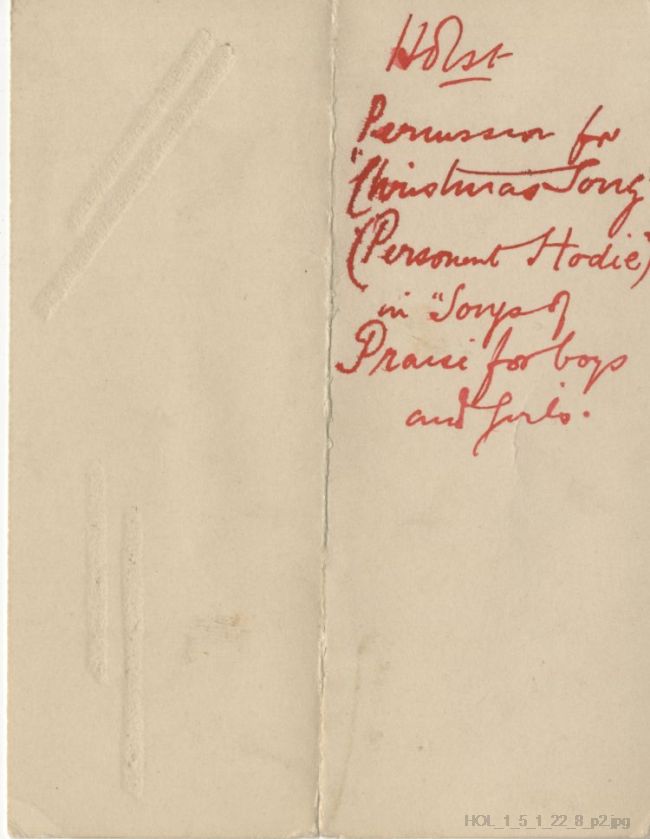 Holst
Permission for
"Christmas Song"
(Personent Hodie")
in "Songs of
Praise for boys
and girls.
HOL_1_5_1_22_8_p2.jpg